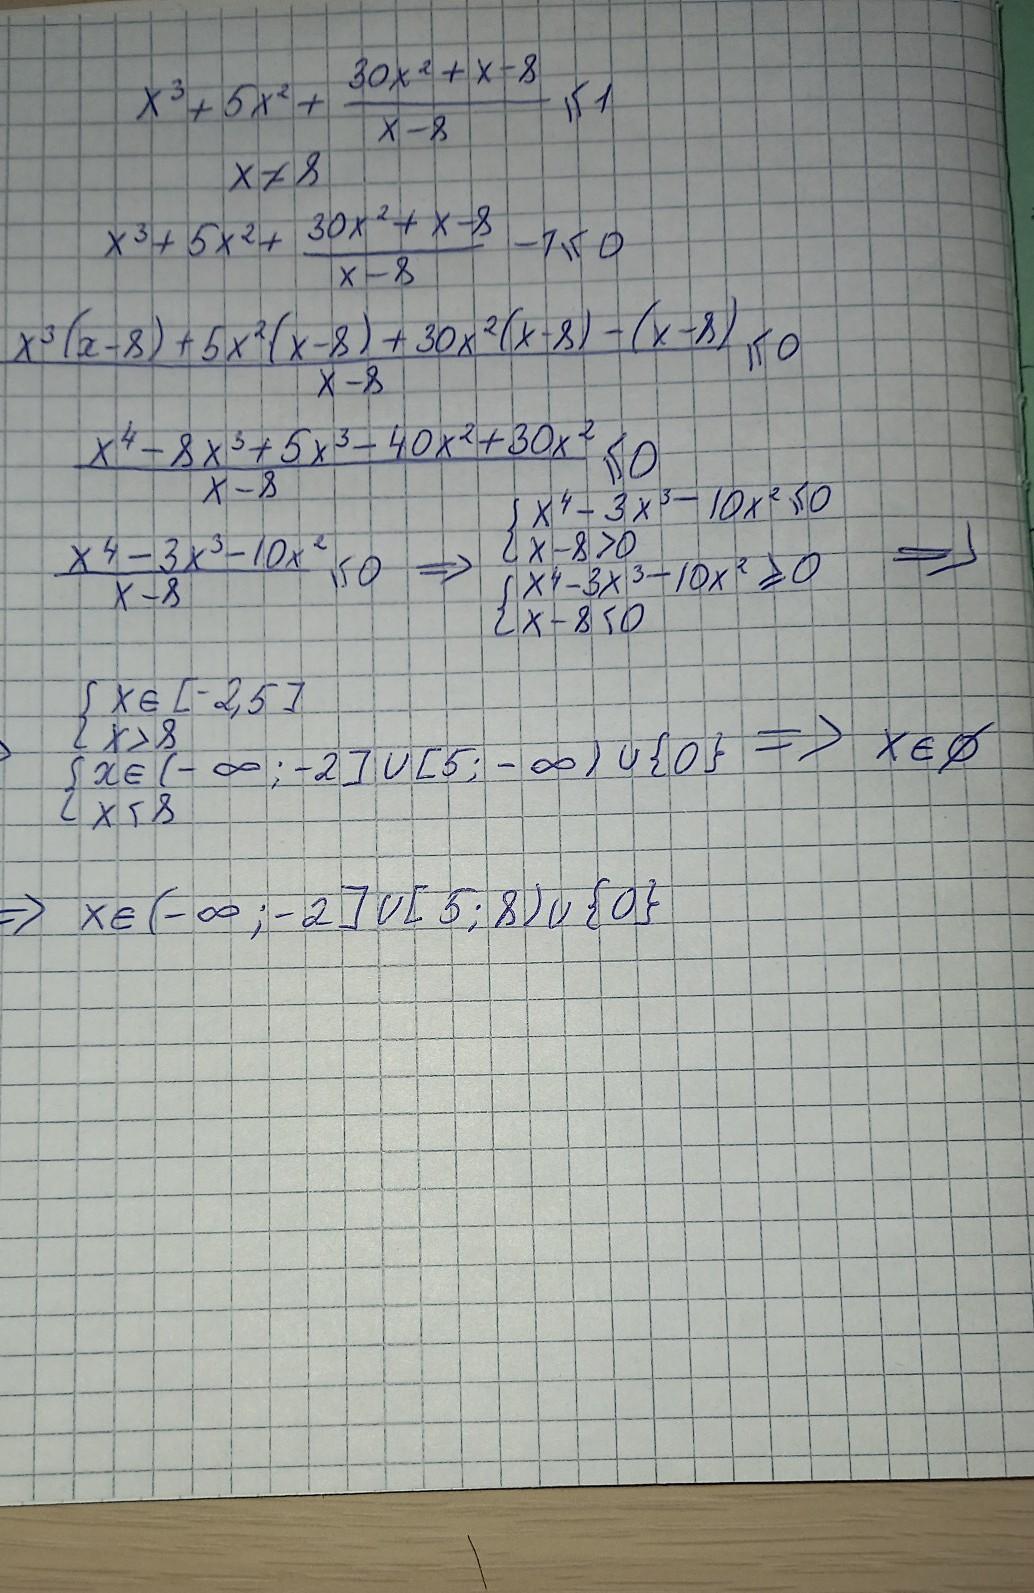 x³ + 5x² + (30x² + x - 8)/(x - 8) ⩽ 1
x ≠ 8
x³ + 5x² + (30x² + x - 8)/(x - 8) - 1 ⩽ 0
(x³(x - 8) + 5x²(x - 8) + 30x²(x - 8) - (x - 8))/(x - 8) ⩽ 0
(x⁴ - 8x³ + 5x³ - 40x² + 30x²)/(x - 8) ⩽ 0
(x⁴ - 3x³ - 10x²)/(x - 8) ⩽ 0 => { x⁴ - 3x³ - 10x² ⩽ 0
{ x - 8 > 0
{ x⁴ - 3x³ - 10x² ⩾ 0 =>
{ x - 8 < 0
{ x ∈ [-2, 5]
{ x > 8
{ x ∈ (-∞; -2] ∪ [5; -∞) ∪ {0} => x ∈ ∅
{ x < 8
=> x ∈ (-∞; -2] ∪ [5; 8) ∪ {0}